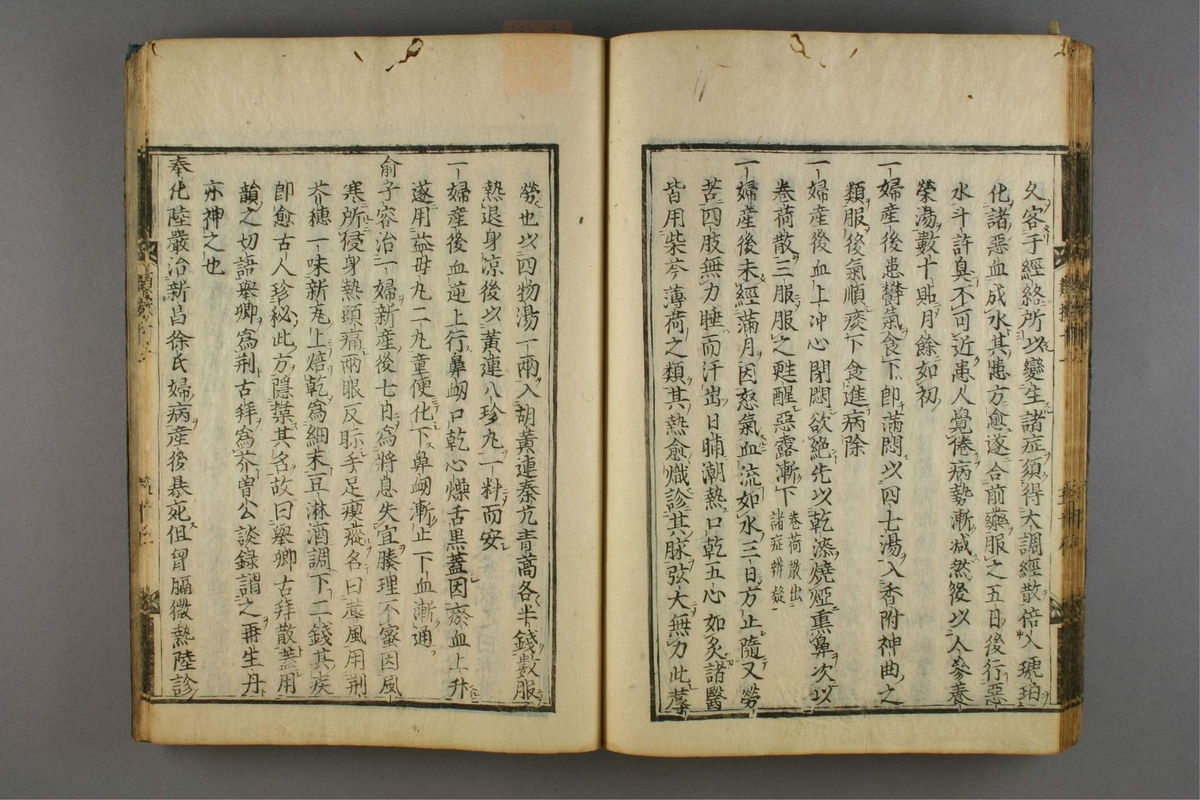 久客于經絡所以變生諸症須得大調經散倍入琥珀
化諸惡血成水其患方愈遂合前藥服之五日後行惡
水斗許臭不可近患人覺倦病勢漸减然後以人參養
榮湯數十貼月餘如初
一婦產後患鬱氣食下即滿悶以四七湯入香附神曲之
類服後氣順痰下食進病除
一婦產後血上冲心閉悶欲絕先以乾漆燒煙熏鼻次以
卷荷散三服服之甦醒惡露漸下卷荷散出諸症辨疑
一婦產後未經滿月因怒氣血流如水三日方止隨又勞
苦四肢無力睡而汗出日晡潮熱口乾五心如炙諸醫
皆用柴芩薄荷之類其熱愈熾診其脉弦大無力此蓐
勞也以四物湯一兩入胡黃連秦艽青蒿各半錢數服
熱退身凉後以黃連八珍丸一料而安
一婦產後血逆上行鼻衂口乾心燥舌黑蓋因瘀血上升
遂用益母丸二丸童便化下鼻衂漸止下血漸通
俞子容治一婦新產後七日爲將息失宜腠理不密因風
寒所侵身熱頭痛兩眼反眎手足瘈瘲名曰蓐風用荆
芥穗一味新瓦上焙乾爲細末豆淋酒調下二錢其疾
即愈古人珍秘此方隱禁其名故曰擧卿古拜散蓋用
韻之切語擧卿爲荆古拜爲芥曾公談錄謂之再生丹
亦神之也
奉化陸嚴治新昌徐氏婦病產後暴死但胷膈微熱陸診